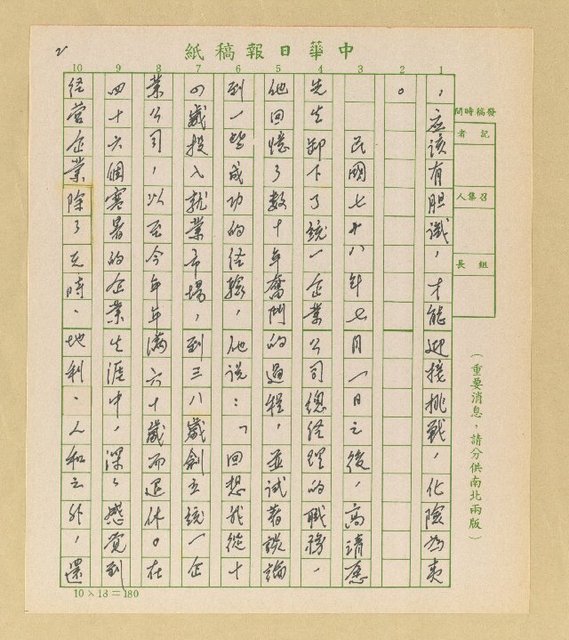 中華日報稿紙
2
1 2 3 4 5 6 7 8 9 10
發稿時間
記者
召集人
組長
(重要消息,請分供南北兩版)
,應該有胆識,才能迎接挑戰,化險為夷
。
民國七十八年七月一日之後,高清愿
先生卸下了統一企業公司總經理的職務,
他回憶了數十年奮鬥的過程,並試著談論
到一些成功的經驗,他說:「回想我從十
四歲投入就業市場,到三八歲創立統一企
業公司,以至今年年滿六十歲而退休。在
四十六個寒暑的企業生涯中,深深感覺到
經營企業除了天時、地利、人和之外,還
10×18=180